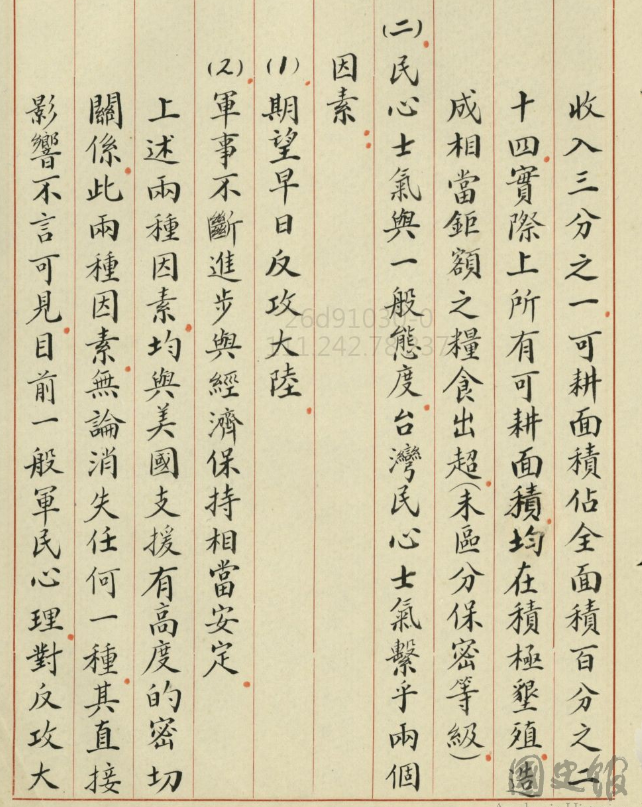 收入三分之一可耕面積佔全面積百分之二
十四實際上所有可耕面積均在積極墾殖造
成相當鉅額之糧食出超(未區分保密等級)
(二)民心士氣與一般態度台灣民心士氣繫乎兩個
因素
(1)期望早日反攻大陸
(2)軍事不斷進步與經濟保持相當安定
上述兩種因素均與美國支援有高度的密切
關係此兩種因素無論消失任何一種其直接
影響不言可見目前一般軍民心理對反攻大
國史館